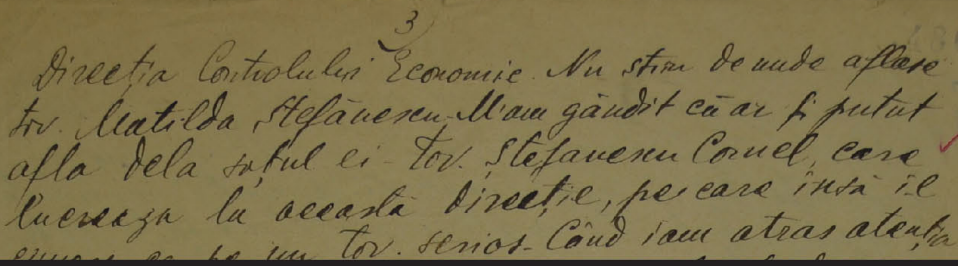 3
Direcția Controlului Economic. Nu știu de unde aflase
tov. Matilda Ștefănescu. M'am gândit că ar fi putut
afla dela soțul ei - tov. Ștefanescu Cornel, care
lucreaza la această direcție, pe care însă il
ca pe un tov. serios. Când iam atras atenția